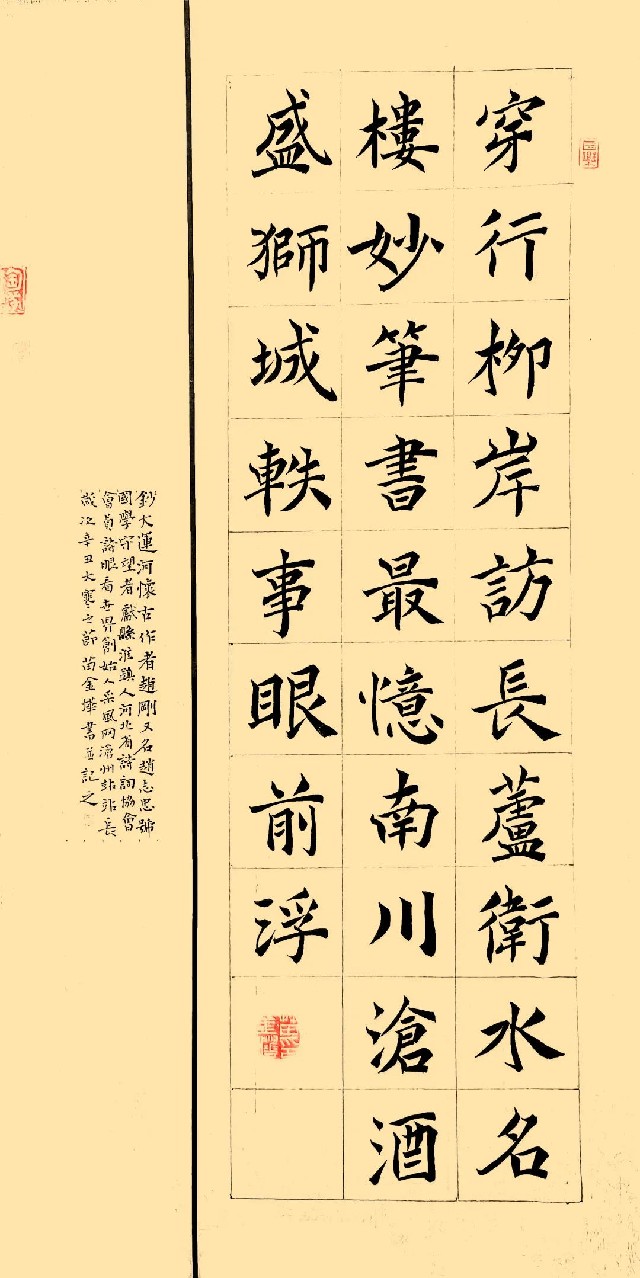 穿行柳岸訪長蘆衛水名
樓妙筆書最憶南川滄酒
盛獅城軼事眼前浮
鈔大運河懷古作者趙剛又名趙志思號
國學守望者獻縣淮鎮人河北省詩詞協會
會員詩眼看世界創始人采風网滄州站站長
歲次辛丑大寒之節苗金燁書並記之